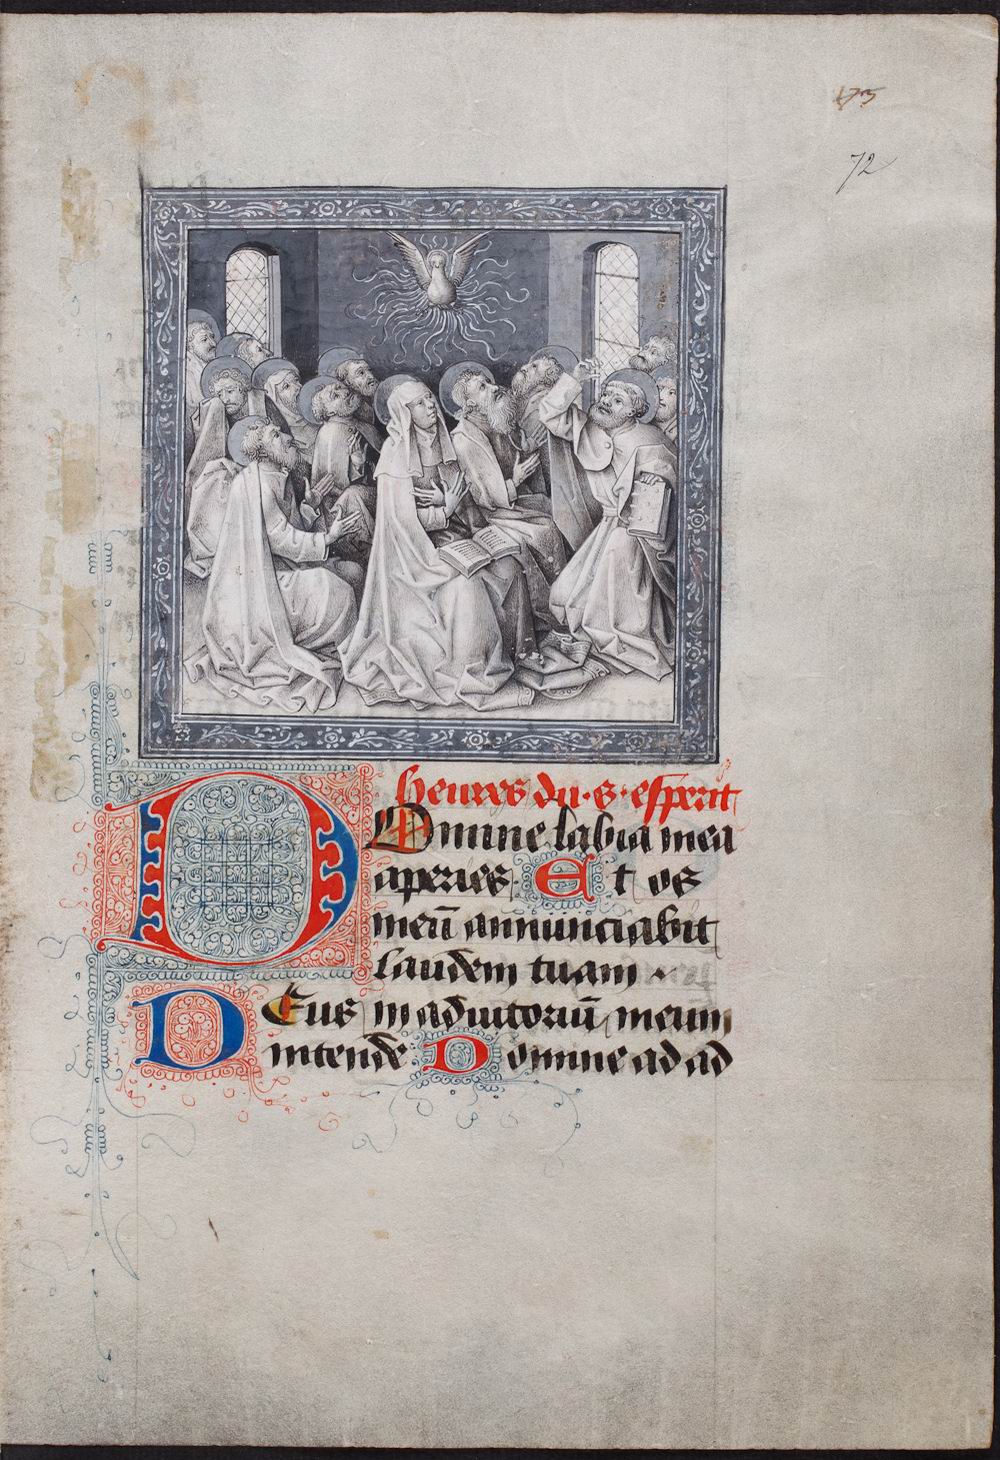 72
heures du·s·esperit
Domine labia mea
aperies· Et os
meū annunciabit
laudem tuam ·
DEus in adiutoriū meum
intende Domine ad ad